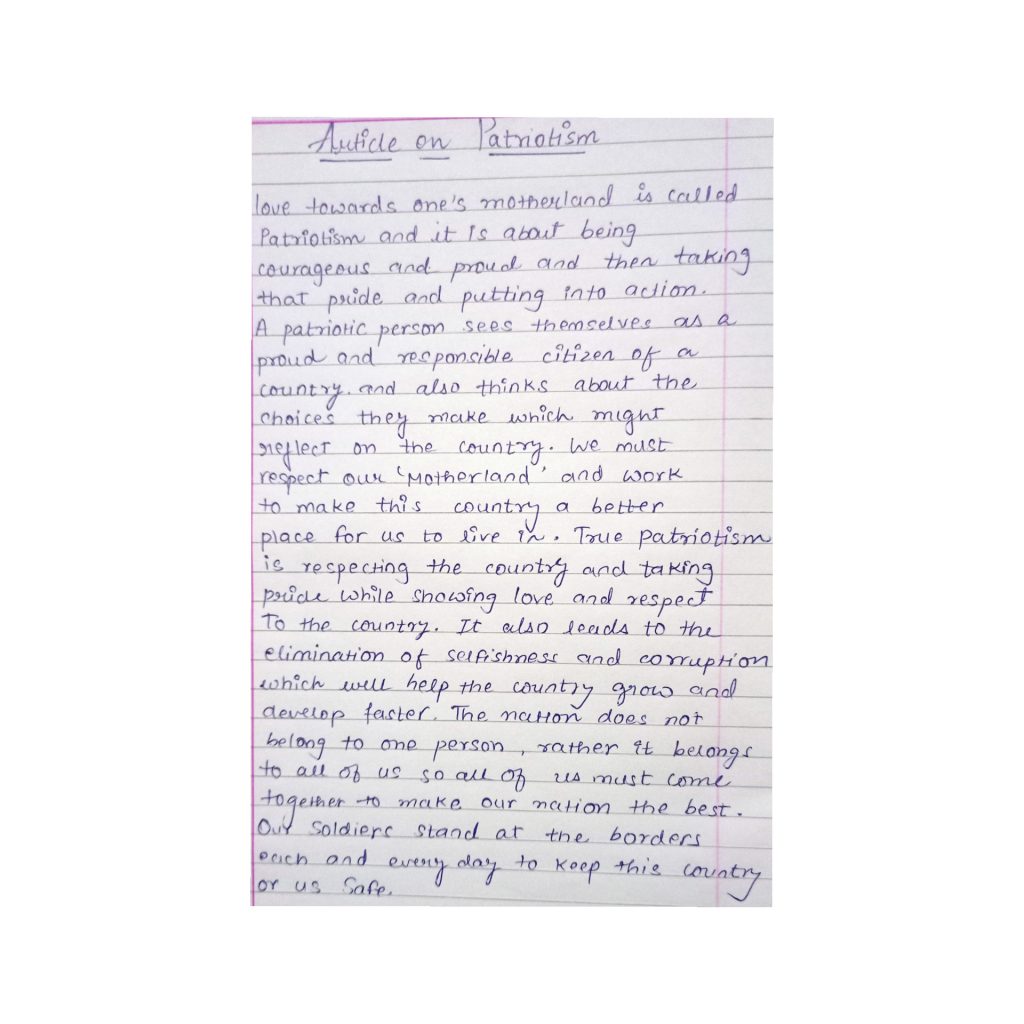 Article on Patriotism
love towards one's motherland is called
Patriotism and it Is about being
courageous and proud and then taking
that pride and putting into action.
A patriotic person sees themselves as a
proud and responsible citizen of a
country. and also thinks about the
choices they make which might
reflect on the country. We must
respect our 'Motherland' and work
to make this country a better
place for us to live in. True patriotism
is respecting the country and taking
pride while showing love and respect
To the country. It also leads to the
elimination of selfishness and corruption
which will help the country grow and
develop faster. The nation does not
belong to one person, rather it belongs
to all of us so all of us must come
together to make our nation the best.
Our Soldiers stand at the borders
each and every day to keep this country
or us Safe.